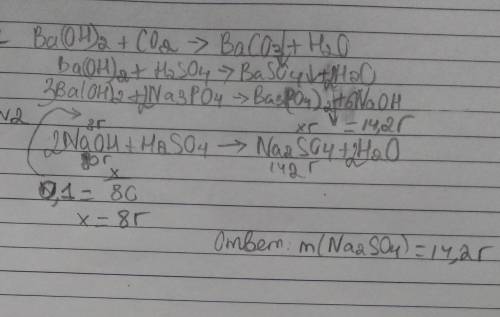 Ba(OH)₂ + CO₂ → BaCO₃↓ + H₂O
Ba(OH)₂ + H₂SO₄ → BaSO₄↓ + 2H₂O
3Ba(OH)₂ + 2Na3PO₄ → Ba₃(PO₄)₂↓ + 6NaOH
√2 8г xг = 14,2г
2NaOH + H₂SO₄ → Na₂SO₄ + 2H₂O
80г 142г
0,1 = x/80
x = 8г
Ответ: m(Na₂SO₄) = 14,2г